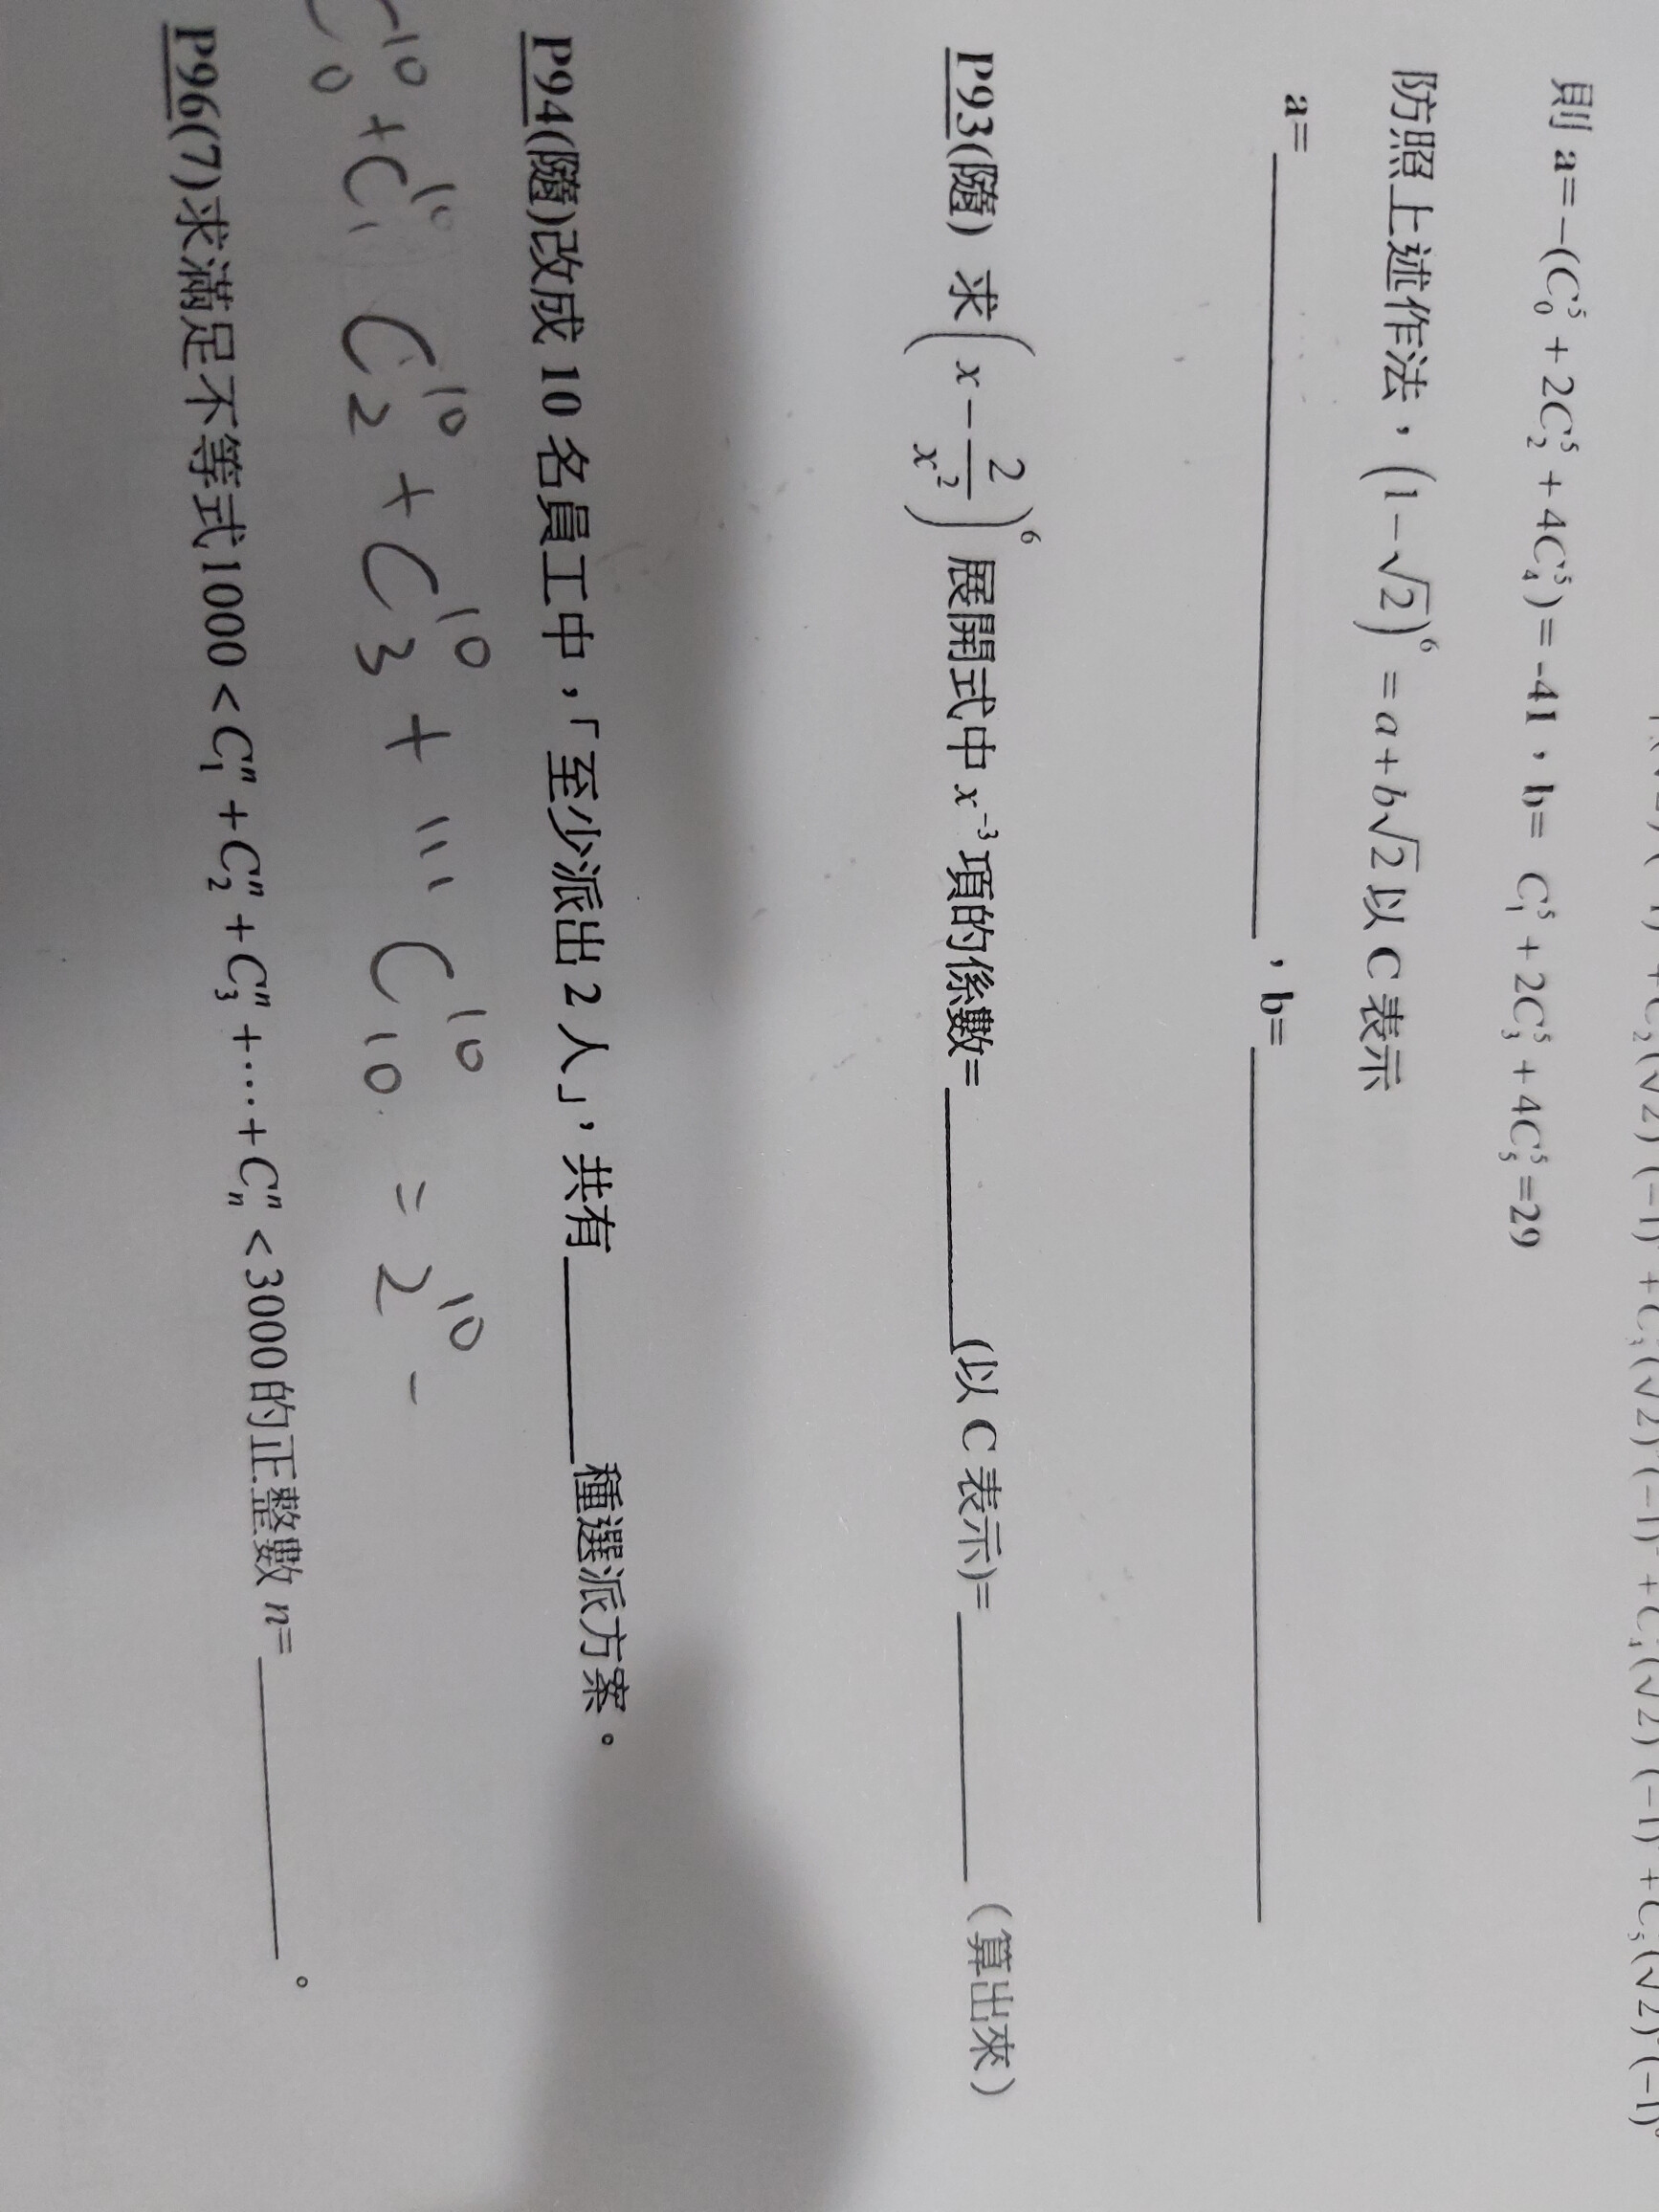 則 a=−(C₀⁵ + 2C₂⁵ + 4C₄⁵) = -41，b= C₁⁵ + 2C₃⁵ + 4C₅⁵ =29
防照上述作法，(1−√2)⁶ = a+b√2 以 C 表示
a=____________，b=____________
P93(隨) 求(x − 2/x²)⁶ 展開式中 x⁻³ 項的係數=________(以 C 表示)=________ (算出來)
P94(隨)改成 10 名員工中，「至少派出 2 人」，共有________種選派方案。
C₀¹⁰ + C₁¹⁰ C₂¹⁰ + C₃¹⁰ + ... C₁₀¹⁰ = 2¹⁰ −
P96(7)求滿足不等式1000 < C₁ⁿ + C₂ⁿ + C₃ⁿ + ⋯ + Cₙⁿ < 3000的正整數 n=________。